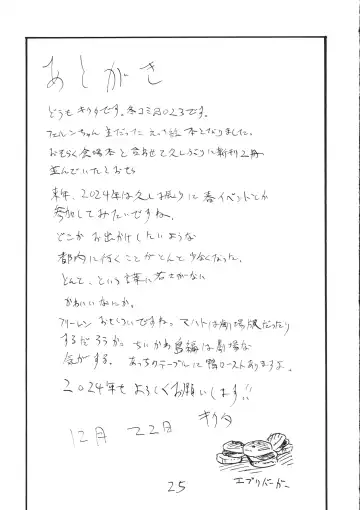 あとがき
どうもキクタです。冬コミ2023です。
フェルンちゃん主だったえっち 本となりました。
おもらく 本と合わせて久しぶりに新刊2冊
並んでいたとおもう
来年、2024年は久し振りに春イベントとか
参加してみたいですね。
どこかお出かけしたいような
都内に行くことがとんと少なくなった。
とんと、という言葉に若さがない
かわいいなにか。
フリーレンおもしろいですね。マハトは劇場版だったり
するだろうか。ちいかわ島編は劇場な
気がする。あっちのテーブルに鴨ローストありますよ。
2024年もよろしくお願いします!!
キクタ
12月 22日
エブリバーガー
25